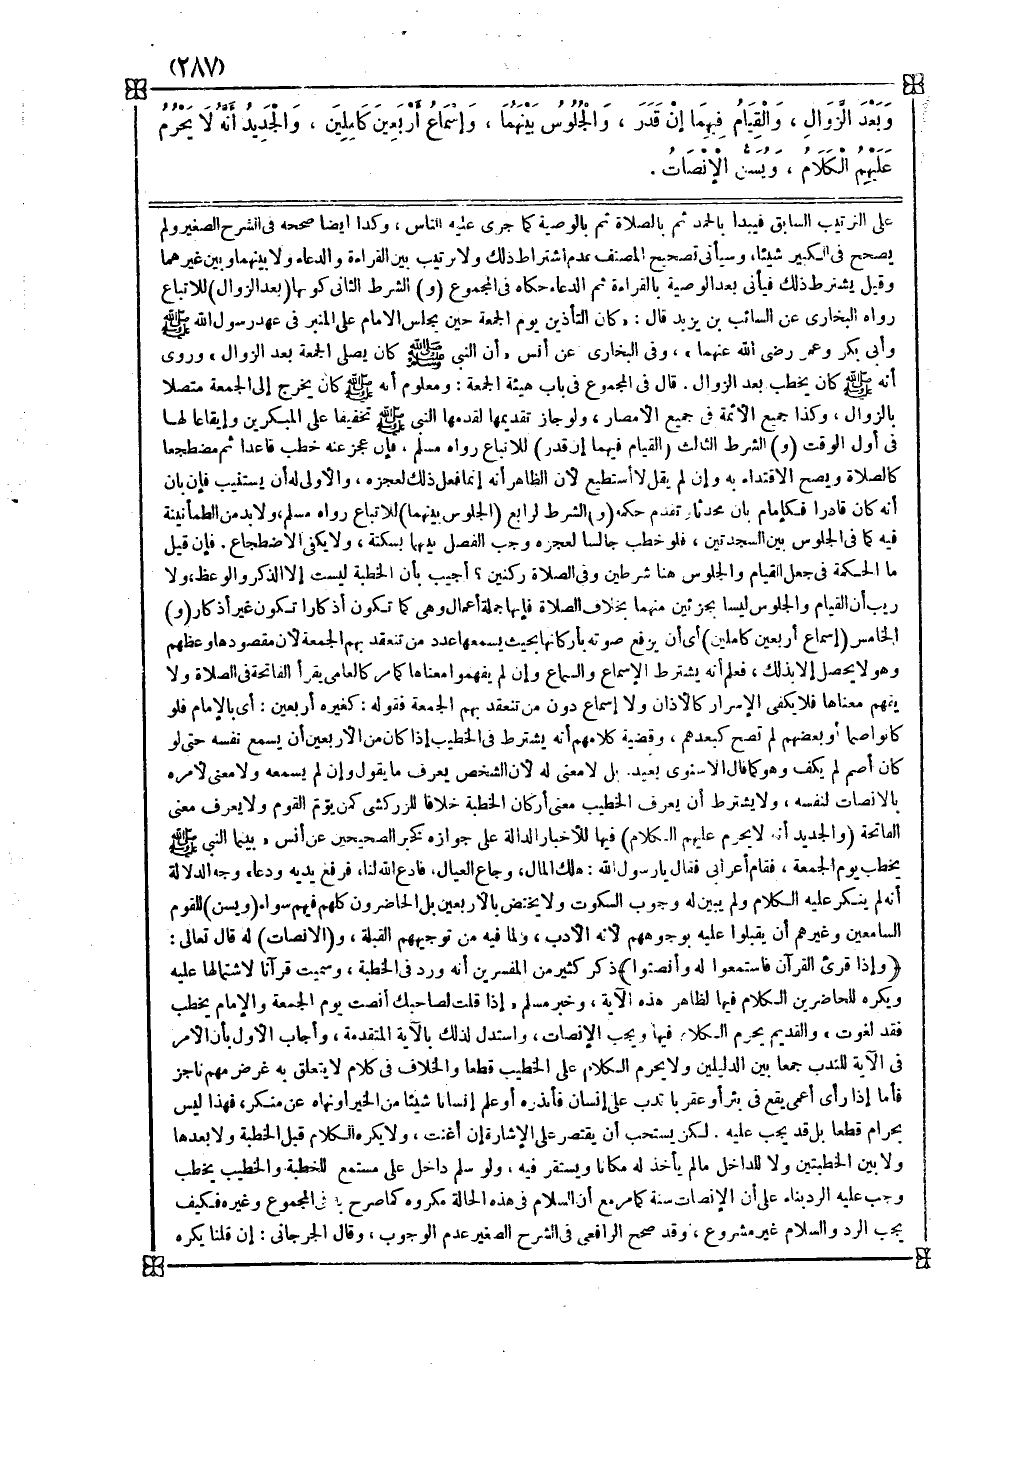 (٢٨٧)
وَبَعْدَ الزَّوَالِ ، وَالْقِيَامُ فِيهِمَا إِنْ قَدَرَ ، وَالْجُلُوسُ بَيْنَهُمَا ، وَإِسْمَاعُ أَرْبَعِينَ كَامِلِينَ ، وَالْجَدِيدُ أَنَّهُ لَا يَحْرُمُ
عَلَيْهِمُ الْكَلَامُ ، وَيُسَنُّ الْإِنْصَاتُ .
على الترتيب السابق فيبدأ بالحمد ثم بالصلاة ثم بالوصية كما جرى عليه الناس ، وكذا أيضا صححه فى الشرح الصغير ولم
يصحح فى الكبير شيئا، وسيأتى تصحيح المصنف عدم اشتراط ذلك ولا ترتيب بين القراءة والدعاء ولا بينهما وبين غيرهما
وقيل يشترط ذلك فيأتى بعد الوصية بالقراءة ثم الدعاء حكاه فى المجموع (و) الشرط الثانى كونها (بعد الزوال) للاتباع
رواه البخارى عن السائب بن يزيد قال : «كان التأذين يوم الجمعة حين يجلس الامام على المنبر فى عهد رسول الله ﷺ
وأبى بكر وعمر رضى الله عنهما» ، وفى البخارى عن أنس «أن النبى ﷺ كان يصلى الجمعة بعد الزوال» وروى
أنه ﷺ كان يخطب بعد الزوال . قال فى المجموع فى باب هيئة الجمعة : ومعلوم أنه ﷺ كان يخرج إلى الجمعة متصلا
بالزوال ، وكذا جميع الأئمة فى جميع الأمصار ، ولو جاز تقديمها لقدمها النبى ﷺ تخفيفا على المبكرين وإيقاعا لها
فى أول الوقت (و) الشرط الثالث (القيام فيهما إن قدر) للاتباع رواه مسلم ، فإن عجز عنه خطب قاعدا ثم مضطجعا
كالصلاة ويصح الاقتداء به وإن لم يقل لا أستطيع لأن الظاهر أنه إنما فعل ذلك لعجزه ، والأولى له أن يستنيب فإن بان
أنه كان قادرا فكإمام بان محدثا، تقدم حكمه (و) الشرط الرابع (الجلوس بينهما) للاتباع رواه مسلم، ولابد من الطمأنينة
فيه كما فى الجلوس بين السجدتين ، فلو خطب جالسا لعجزه وجب الفصل بينهما بسكتة ، ولا يكفى الاضطجاع . فإن قيل
ما الحكمة فى جعل القيام والجلوس هنا شرطين وفى الصلاة ركنين ؟ أجيب بأن الخطبة ليست إلا الذكر والوعظ، ولا
ريب أن القيام والجلوس ليسا بجزئين منهما بخلاف الصلاة فإنها جملة أعمال وهى كما تكون أذكارا تكون غير أذكار (و)
الخامس (إسماع أربعين كاملين) أى أن يرفع صوته بأركانها بحيث يسمعها عدد من تنعقد بهم الجمعة لأن مقصودها وعظهم
وهو لا يحصل إلا بذلك ، فعلم أنه يشترط الإسماع والسماع وإن لم يفهموا معناها كما مر كالعامى يقرأ الفاتحة فى الصلاة ولا
يفهم معناها فلا يكفى الإسرار كالأذان ولا إسماع دون من تنعقد بهم الجمعة فقوله : كغيره أربعين : أى بالإمام فلو
كانوا صما أو بعضهم لم تصح كبعدهم ، وقضية كلامهم أنه يشترط فى الخطيب إذا كان من الأربعين أن يسمع نفسه حتى لو
كان أصم لم يكف وهو كما قال الاسنوى بعيد. بل لا معنى له لأن الشخص يعرف ما يقول وإن لم يسمعه ولا معنى لأمره
بالانصات لنفسه ، ولا يشترط أن يعرف الخطيب معنى أركان الخطبة خلافا للزركشى كمن يؤم القوم ولا يعرف معنى
الفاتحة (والجديد أنه لا يحرم عليهم الكلام) فيها للأخبار الدالة على جوازه كخبر الصحيحين عن أنس «بينما النبى ﷺ
يخطب يوم الجمعة ، فقام أعرابى فقال يا رسول الله : هلك المال، وجاع العيال، فادع الله لنا، فرفع يديه ودعا» وجه الدلالة
أنه لم ينكر عليه الكلام ولم يبين له وجوب السكوت ولا يختص بالأربعين بل الحاضرون كلهم فيهم سواء (ويسن) للقوم
السامعين وغيرهم أن يقبلوا عليه بوجوههم لأنه الأدب ، ولما فيه من توجيههم القبلة ، و(الانصات) له قال تعالى :
(وإذا قرئ القرآن فاستمعوا له وأنصتوا) ذكر كثير من المفسرين أنه ورد فى الخطبة ، وسميت قرآنا لاشتمالها عليه
ويكره للحاضرين الكلام فيها لظاهر هذه الآية ، وخبر مسلم «إذا قلت لصاحبك أنصت يوم الجمعة والإمام يخطب
فقد لغوت» والقديم يحرم الكلام فيها ويجب الإنصات ، واستدل لذلك بالآية المتقدمة ، وأجاب الأول بأن الأمر
فى الآية للندب جمعا بين الدليلين ولا يحرم الكلام على الخطيب قطعا والخلاف فى كلام لا يتعلق به غرض مهم ناجز
فأما إذا رأى أعمى يقع فى بئر أو عقربا تدب على إنسان فأنذره أو علم إنسانا شيئا من الخير أو نهاه عن منكر، فهذا ليس
بحرام قطعا بل قد يجب عليه . لكن يستحب أن يقتصر على الإشارة إن أغنت ، ولا يكره الكلام قبل الخطبة ولا بعدها
ولا بين الخطبتين ولا للداخل مالم يأخذ له مكانا ويستقر فيه ، ولو سلم داخل على مستمع للخطبة والخطيب يخطب
وجب عليه الرد بناء على أن الإنصات سنة كما مر مع أن السلام فى هذه الحالة مكروه كما صرح به فى المجموع وغيره فكيف
يجب الرد والسلام غير مشروع ، وقد صحح الرافعى فى الشرح الصغير عدم الوجوب ، وقال الجرجانى : إن قلنا يكره